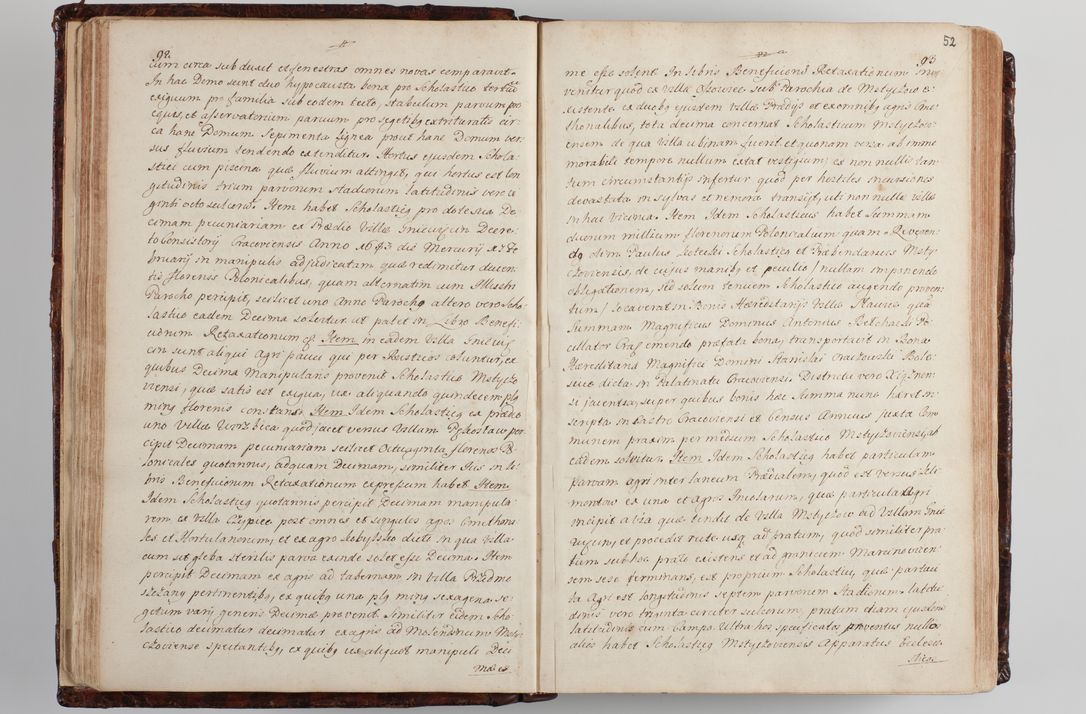 92.
cum circa subduxit et fenestras omnes novas comparavit.
In hac Domo sunt duo hypocausta bona pro Scholastico tertiũ
exiguum pro familia sub eodem tecto, stabulum parvum pro
equis, et asservatorium parvum pro segetibq extrituratis cir
ca hanc Domum Sepimenta Lignea prout hanc Domum ver,
sus fluvium tendendo extenditur. Hortus ejusdem Schola
stici cum piscina quæ fluvium attingit, qui hortus est lon
gitudinis trium parvorum Stadiorum latitudinis vero vi
ginti octo sulcorũ. Item habet Scholasticq pro dote sua De
cimam pecuniariam ex Prædio Villæ in Decre,
to Consistorij Cracoviensis Anno 1643 die Mercurij Fe
bruarij in manipulis adjudicatam quæ redimitur ducen
tis florenis Polonicalibus, quam alternatim cum Illustri
Parocho percipit, scilicet uno Anno Parocho altero vero Scho
lastico eadem Decima solvitur ut patet in Libro Benefi
ciorum Retaxationum Item in eadem Villa
sunt aliqui Agri pauci qui per Rusticos coluntur, ex
quibus Decima Manipularis provenit Scholastico Mstyczo
viensi, quæ satis est exigua, vix aliquando quindecem plq
minq florenis constans. Item Idem Scholasticq ex prædio
uno Villæ quod jacet versus Villam per,
cipit Decimam pecuniariam scilicet Octuaginta florenos Po
lonicales quotannis, adquam Decimam, similiter Jus in Li
bris Beneficiorum Retaxationum expressum habet Item
Idem Scholasticq quotannis percipit Decimam manipula
rem ex Villa post omnes et singulos agros Cmethona
les et Hortulanorum, et ex agro dicto in qua Villa
cum sit gleba sterilis parva exinde solet esse Decima. Item
percipit Decimam ex agris ad tabernam in Villa Przedmo
pertinentibq, ex quibq una plq minq sexagena se
getum varij generis Decimæ provenit. Similiter eidem Scho
lastico decimatur decimatur ex agris ad Molendinum Msty
czoviense spectantibq, ex quibq vix aliquot manipuli Deci
mæ ex
52
93
me esse solent. In Libris Beneficiorũ Retaxationum
venitur quod ex Villa sub Parochia de Mstyczow e
xistente ex duobq ejusdem Villæ Prædijs et ex omnibq agris Cme
thonalibus, tota decima concernat Scholasticum Mstyczovi
ensem de qua Villa ubinam fuerit et quonam versa ab imme
morabili tempore nullum extat vestigium; ex non nullis tan
tum circumstantijs infertur quod per hostiles incursiones
devastata in sylvas et nemora transijt, uti non nullæ villæ
in hac vicinia. Item Idem Scholasticus habet Summam
duorum millium florenorum Polonicalium quam Reveren
dq olim Paulus Scholasticq et Præbendarius Msty
czoviensis, de cujus manibq et peculio / nullam imponendo
obligationem, sed solum tenuem Scholastico augendo proven
tum / locaverat in Bonis Hæreditarijs Villa quã
Summam Magnificus Dominus Antonius Po
cillator Cracq emendo præfata bona, transportavit in Bona
Hæreditaria Magnifici Domini Stanislai
dicta in Palatinatu Cracoviensi, Districtu vero Xiąznen
si jacentia, super quibus bonis hæc Summa nunc hæret in
scripta in Castro Cracoviensi et Census Annuus juxta Com
munem praxim per mediũm Scholastico Mstyczoviensi, ab
eadem solvitur. Item Idem Scholasticq habet particulam
parvam agri inter laneum Prædialem, quod est versus
ex una et agros Incolarum, quæ particula Agri
incipit a via quæ tendit de Villa Mstyczow ad Villam
et procedit recte usq ad pratum, quod similiter pra
tum sub hoc prato existens et ad granicem Marcinovicen
sem sese terminans, est proprium Scholastici, quæ particu
la Agri est longitudinis septem parvorum Stadiorum latitu
dinis vero triginta circiter sulcorum, pratum etiam ejusdem
latitudinis cum Campo. Ultra hos specificatos proventus nullos
alios habet Scholasticq Mstyczoviensis Apparatus Ecclesia
sticq